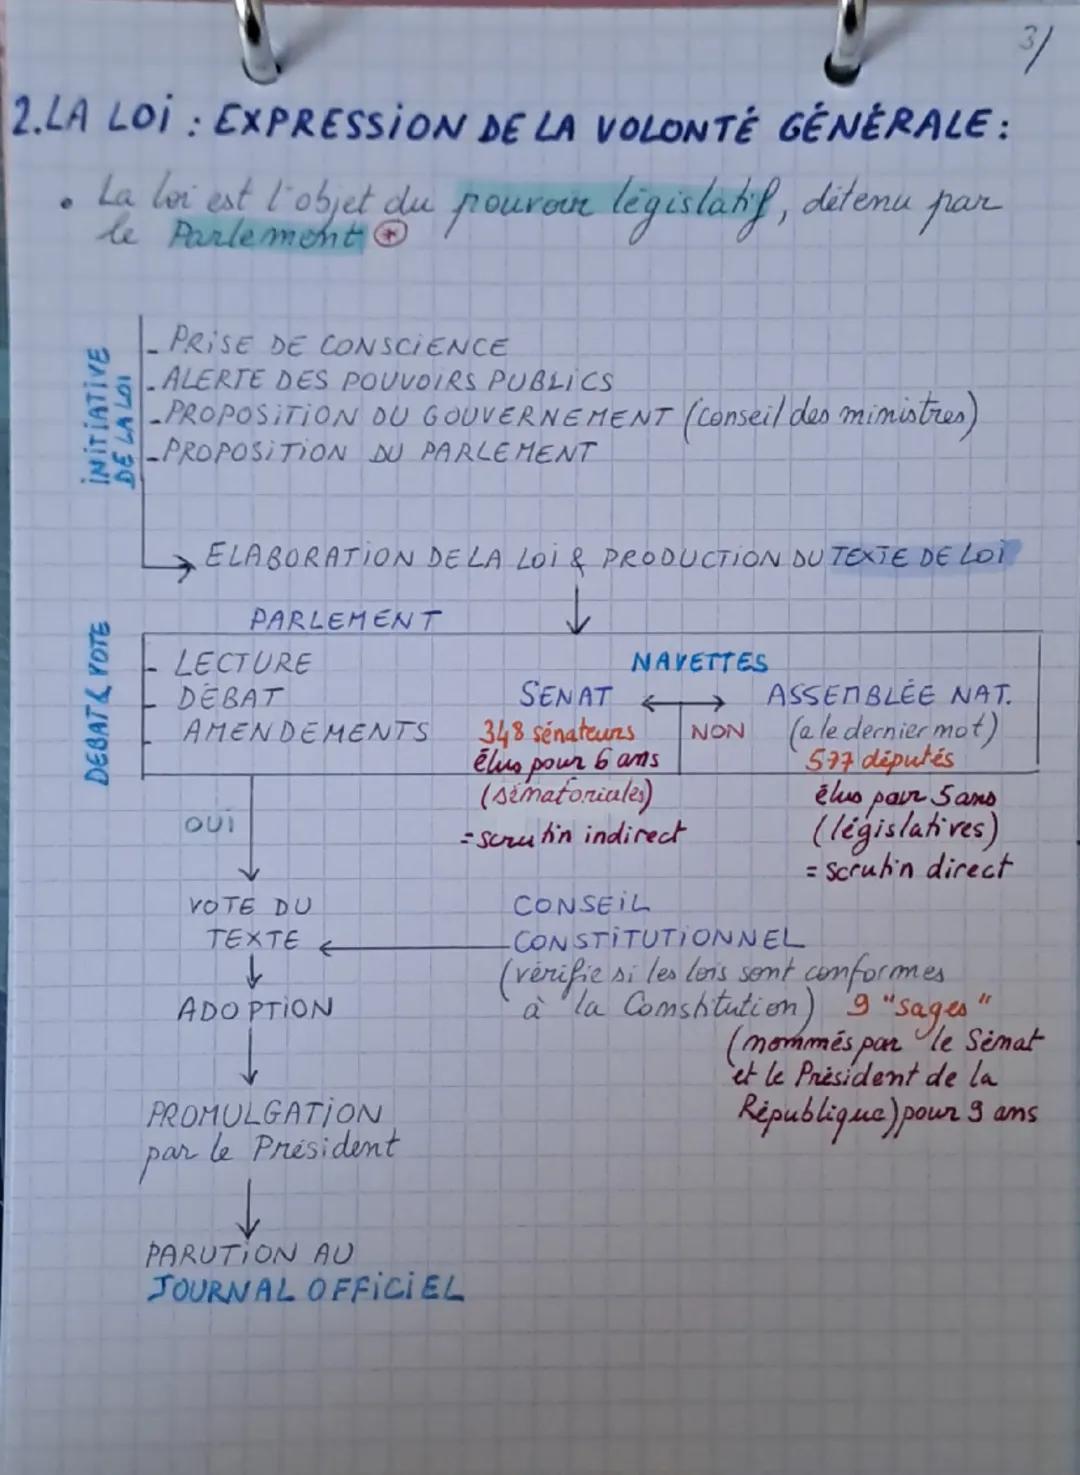 3/
2. LA LOI : EXPRESSION DE LA VOLONTÉ GÉNÉRALE :
• La loi est l'objet du pouvoir législatif, détenu par
le Parlement *
INITIATIVE
DE LA LOI
- PRISE DE CONSCIENCE
- ALERTE DES POUVOIRS PUBLICS
- PROPOSITION DU GOUVERNEMENT (conseil des ministres)
- PROPOSITION DU PARLEMENT
→ ELABORATION DE LA LOI & PRODUCTION DU TEXTE DE LOI
↓
DEBAT & VOTE
PARLEMENT
- LECTURE
- DÉBAT
- AMENDEMENTS
NAVETTES
SENAT ↔ ASSEMBLÉE NAT.
348 sénateurs
élus pour 6 ans
(sénatoriales)
= scrutin indirect
NON
(a le dernier mot)
577 députés
élus pour 5 ans
(législatives)
= scrutin direct
OUI
↓
VOTE DU
TEXTE ←
CONSEIL
CONSTITUTIONNEL
(vérifie si les lois sont conformes
à la Constitution) 9 "sages"
(nommés par le Sénat
et le Président de la
République) pour 9 ans
↓
ADOPTION
↓
PROMULGATION
par le Président
↓
PARUTION AU
JOURNAL OFFICIEL